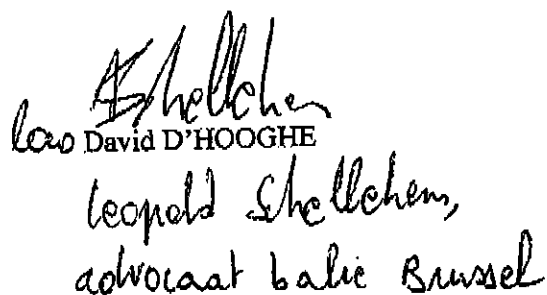 loco David D'HOOGHE
Leopold Schellekens,
advocaat balie Brussel